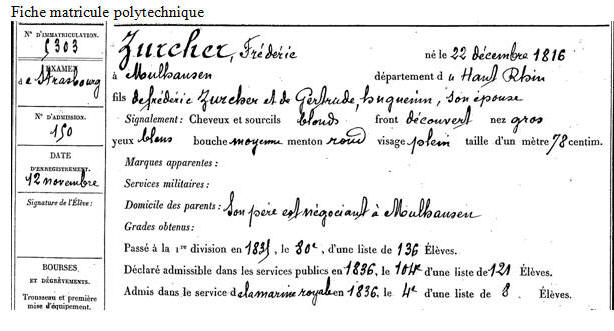 Fiche matricule polytechnique
N° D'IMMATRICULATION.
5303
EXAMEN
de Strasbourg
N° D'ADMISSION.
150
DATE
D'ENREGISTREMENT.
12 novembre
Signature de l'Élève :
BOURSES
ET DÉGRÈVEMENTS.
Trousseau et première
mise d'équipement.
Zurcher, Frédéric né le 22 décembre 1816
à Mulhausen département du Haut Rhin
fils de frédéric Zurcher et de Gertrude, huguenin, son épouse
Signalement: Cheveux et sourcils blonds front découvert nez gros
yeux bleus bouche moyenne menton rond visage plein taille d'un mètre 78 centim.
Marques apparentes :
Services militaires :
Domicile des parents : Son père est négociant à Mulhausen
Grades obtenus:
Passé à la 1re division en 1835, le 80e, d'une liste de 136 Élèves.
Déclaré admissible dans les services publics en 1836, le 104e d'une liste de 121 Élèves.
Admis dans le service de la marine royale en 1836, le 4e d'une liste de 8 Élèves.